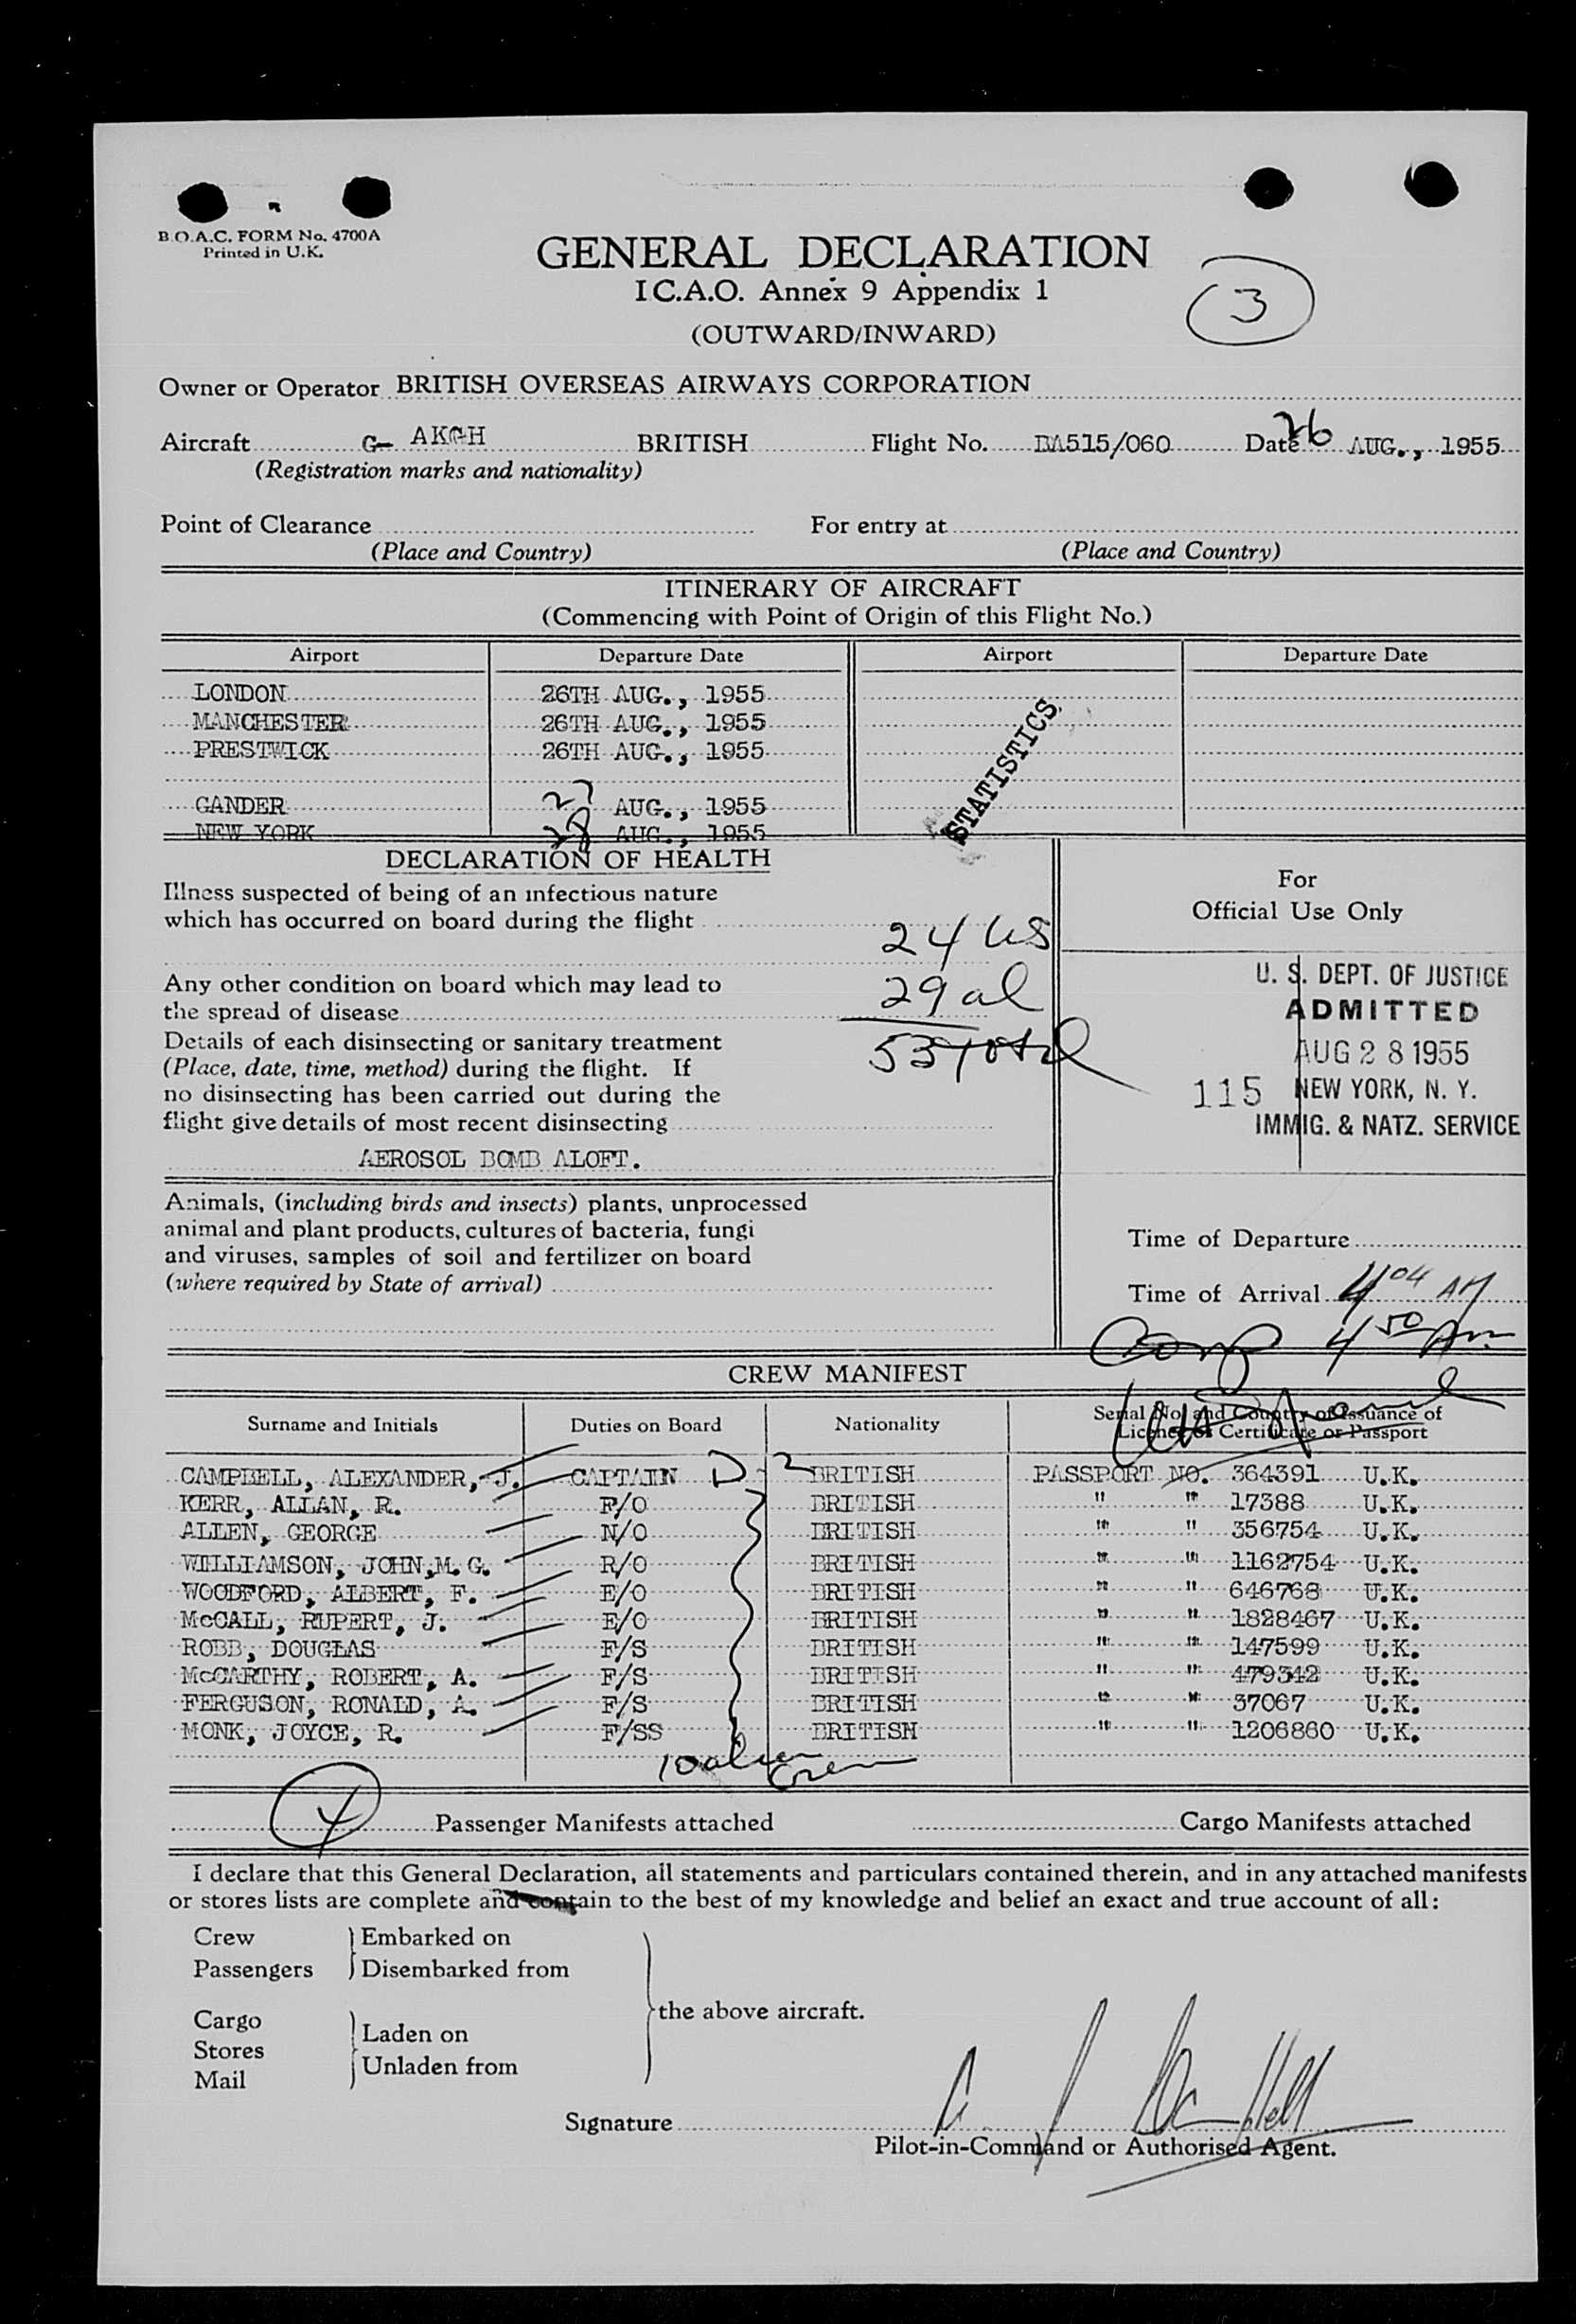 B.O.A.C. FORM No. 4700A
Printed in U.K.
GENERAL DECLARATION
I C.A.O. Annex 9 Appendix 1
(OUTWARD/INWARD)
3
Owner or Operator BRITISH OVERSEAS AIRWAYS CORPORATION
Aircraft G- AKGH BRITISH Flight No. BA515/060 Date 26 AUG., 1955
(Registration marks and nationality)
Point of Clearance For entry at
(Place and Country) (Place and Country)
ITINERARY OF AIRCRAFT
(Commencing with Point of Origin of this Flight No.)
Airport Departure Date Airport Departure Date
LONDON 26TH AUG., 1955
MANCHESTER 26TH AUG., 1955
PRESTWICK 26TH AUG., 1955
GANDER 27 AUG., 1955
NEW YORK 28 AUG., 1955
STATISTICS
DECLARATION OF HEALTH
Illness suspected of being of an infectious nature
which has occurred on board during the flight
24 US
Any other condition on board which may lead to
the spread of disease
29 al
Details of each disinsecting or sanitary treatment
53 Total
(Place, date, time, method) during the flight. If
no disinsecting has been carried out during the
flight give details of most recent disinsecting
AEROSOL BOMB ALOFT.
Animals, (including birds and insects) plants, unprocessed
animal and plant products, cultures of bacteria, fungi
and viruses, samples of soil and fertilizer on board
(where required by State of arrival)
For
Official Use Only
U. S. DEPT. OF JUSTICE
ADMITTED
AUG 28 1955
115 NEW YORK, N. Y.
IMMIG. & NATZ. SERVICE
Time of Departure
Time of Arrival 4 04 AM
4 50 Am
CREW MANIFEST
Surname and Initials Duties on Board Nationality Serial No. and Country of Issuance of
Licence or Certificate or Passport
CAMPBELL, ALEXANDER, J. CAPTAIN D-2 BRITISH PASSPORT NO. 364391 U.K.
KERR, ALLAN, R. F/O BRITISH " " 17388 U.K.
ALLEN, GEORGE N/O BRITISH " " 356754 U.K.
WILLIAMSON, JOHN,M. G. R/O BRITISH " " 1162754 U.K.
WOODFORD, ALBERT, F. E/O BRITISH " " 646768 U.K.
McCALL, RUPERT, J. E/O BRITISH " " 1828467 U.K.
ROBB, DOUGLAS F/S BRITISH " " 147599 U.K.
McCARTHY, ROBERT, A. F/S BRITISH " " 479342 U.K.
FERGUSON, RONALD, A. F/S BRITISH " " 37067 U.K.
MONK, JOYCE, R. F/SS BRITISH " " 1206860 U.K.
10 alien
Crew
4 Passenger Manifests attached Cargo Manifests attached
I declare that this General Declaration, all statements and particulars contained therein, and in any attached manifests
or stores lists are complete and contain to the best of my knowledge and belief an exact and true account of all:
Crew Embarked on
Passengers Disembarked from
the above aircraft.
Cargo Laden on
Stores
Mail Unladen from
Signature
Pilot-in-Command or Authorised Agent.